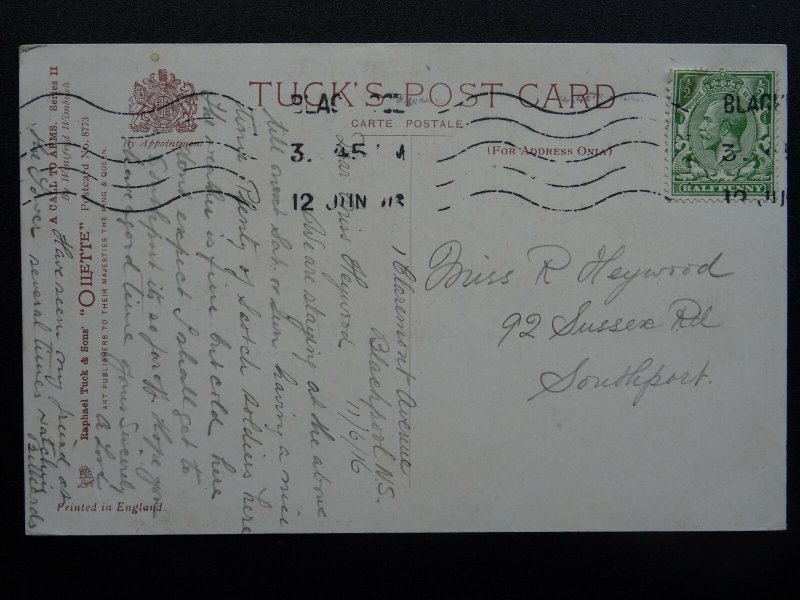 TUCK'S POST CARD
CARTE POSTALE
(FOR ADDRESS ONLY)
By Appointment
BLAC
3. 45
12 JUN
BLACK
3.
12 JU
HALFPENNY
Miss R Heywood
92 Sussex Rd
Southport.
1 Claremont Avenue
Blackpool N.S.
11/6/16
Dear Miss Heywood
We are staying at the above
till next Sat. or Sun having a nice
time. Plenty of Scotch soldiers here
the weather is fine but cold here
dont expect I shall get to
Southport its so far off Hope you
have a good time yours Sincerely
A Lord
Have seen my friend at
the several times watching
Billiards
A CALL TO ARMS. Series II
By Winifred Wimbush
Raphael Tuck & Sons' "OILETTE" Postcard No. 8773
ART PUBLISHERS TO THEIR MAJESTIES THE KING & QUEEN.
Printed in England